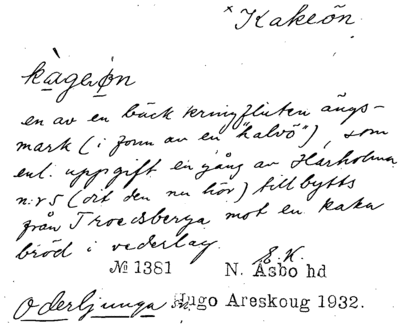 × Kakeön
kàgeǿn
en av en bäck kringfluten ängs-
mark (i form av en "halvö"), som
enl. uppgift en gång av Härholma
n:r 5 (dit den nu hör) tillbytts
från Troedsberga mot en kaka
bröd i vederlag.
E.H.
№ 1381 N. Åsbo hd
Oderljunga Hugo Areskoug 1932.